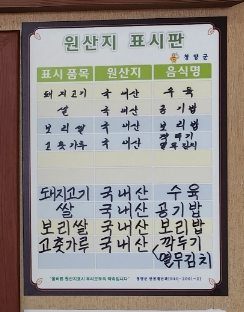 원산지 표시판
청양군
표시품목 원산지 음식명
돼지고기 국내산 수육
쌀 국내산 공기밥
보리쌀 국내산 보리밥
고춧가루 국내산 깍두기
열무김치
돼지고기 국내산 수육
쌀 국내산 공기밥
보리쌀 국내산 보리밥
고춧가루 국내산 깍두기
열무김치